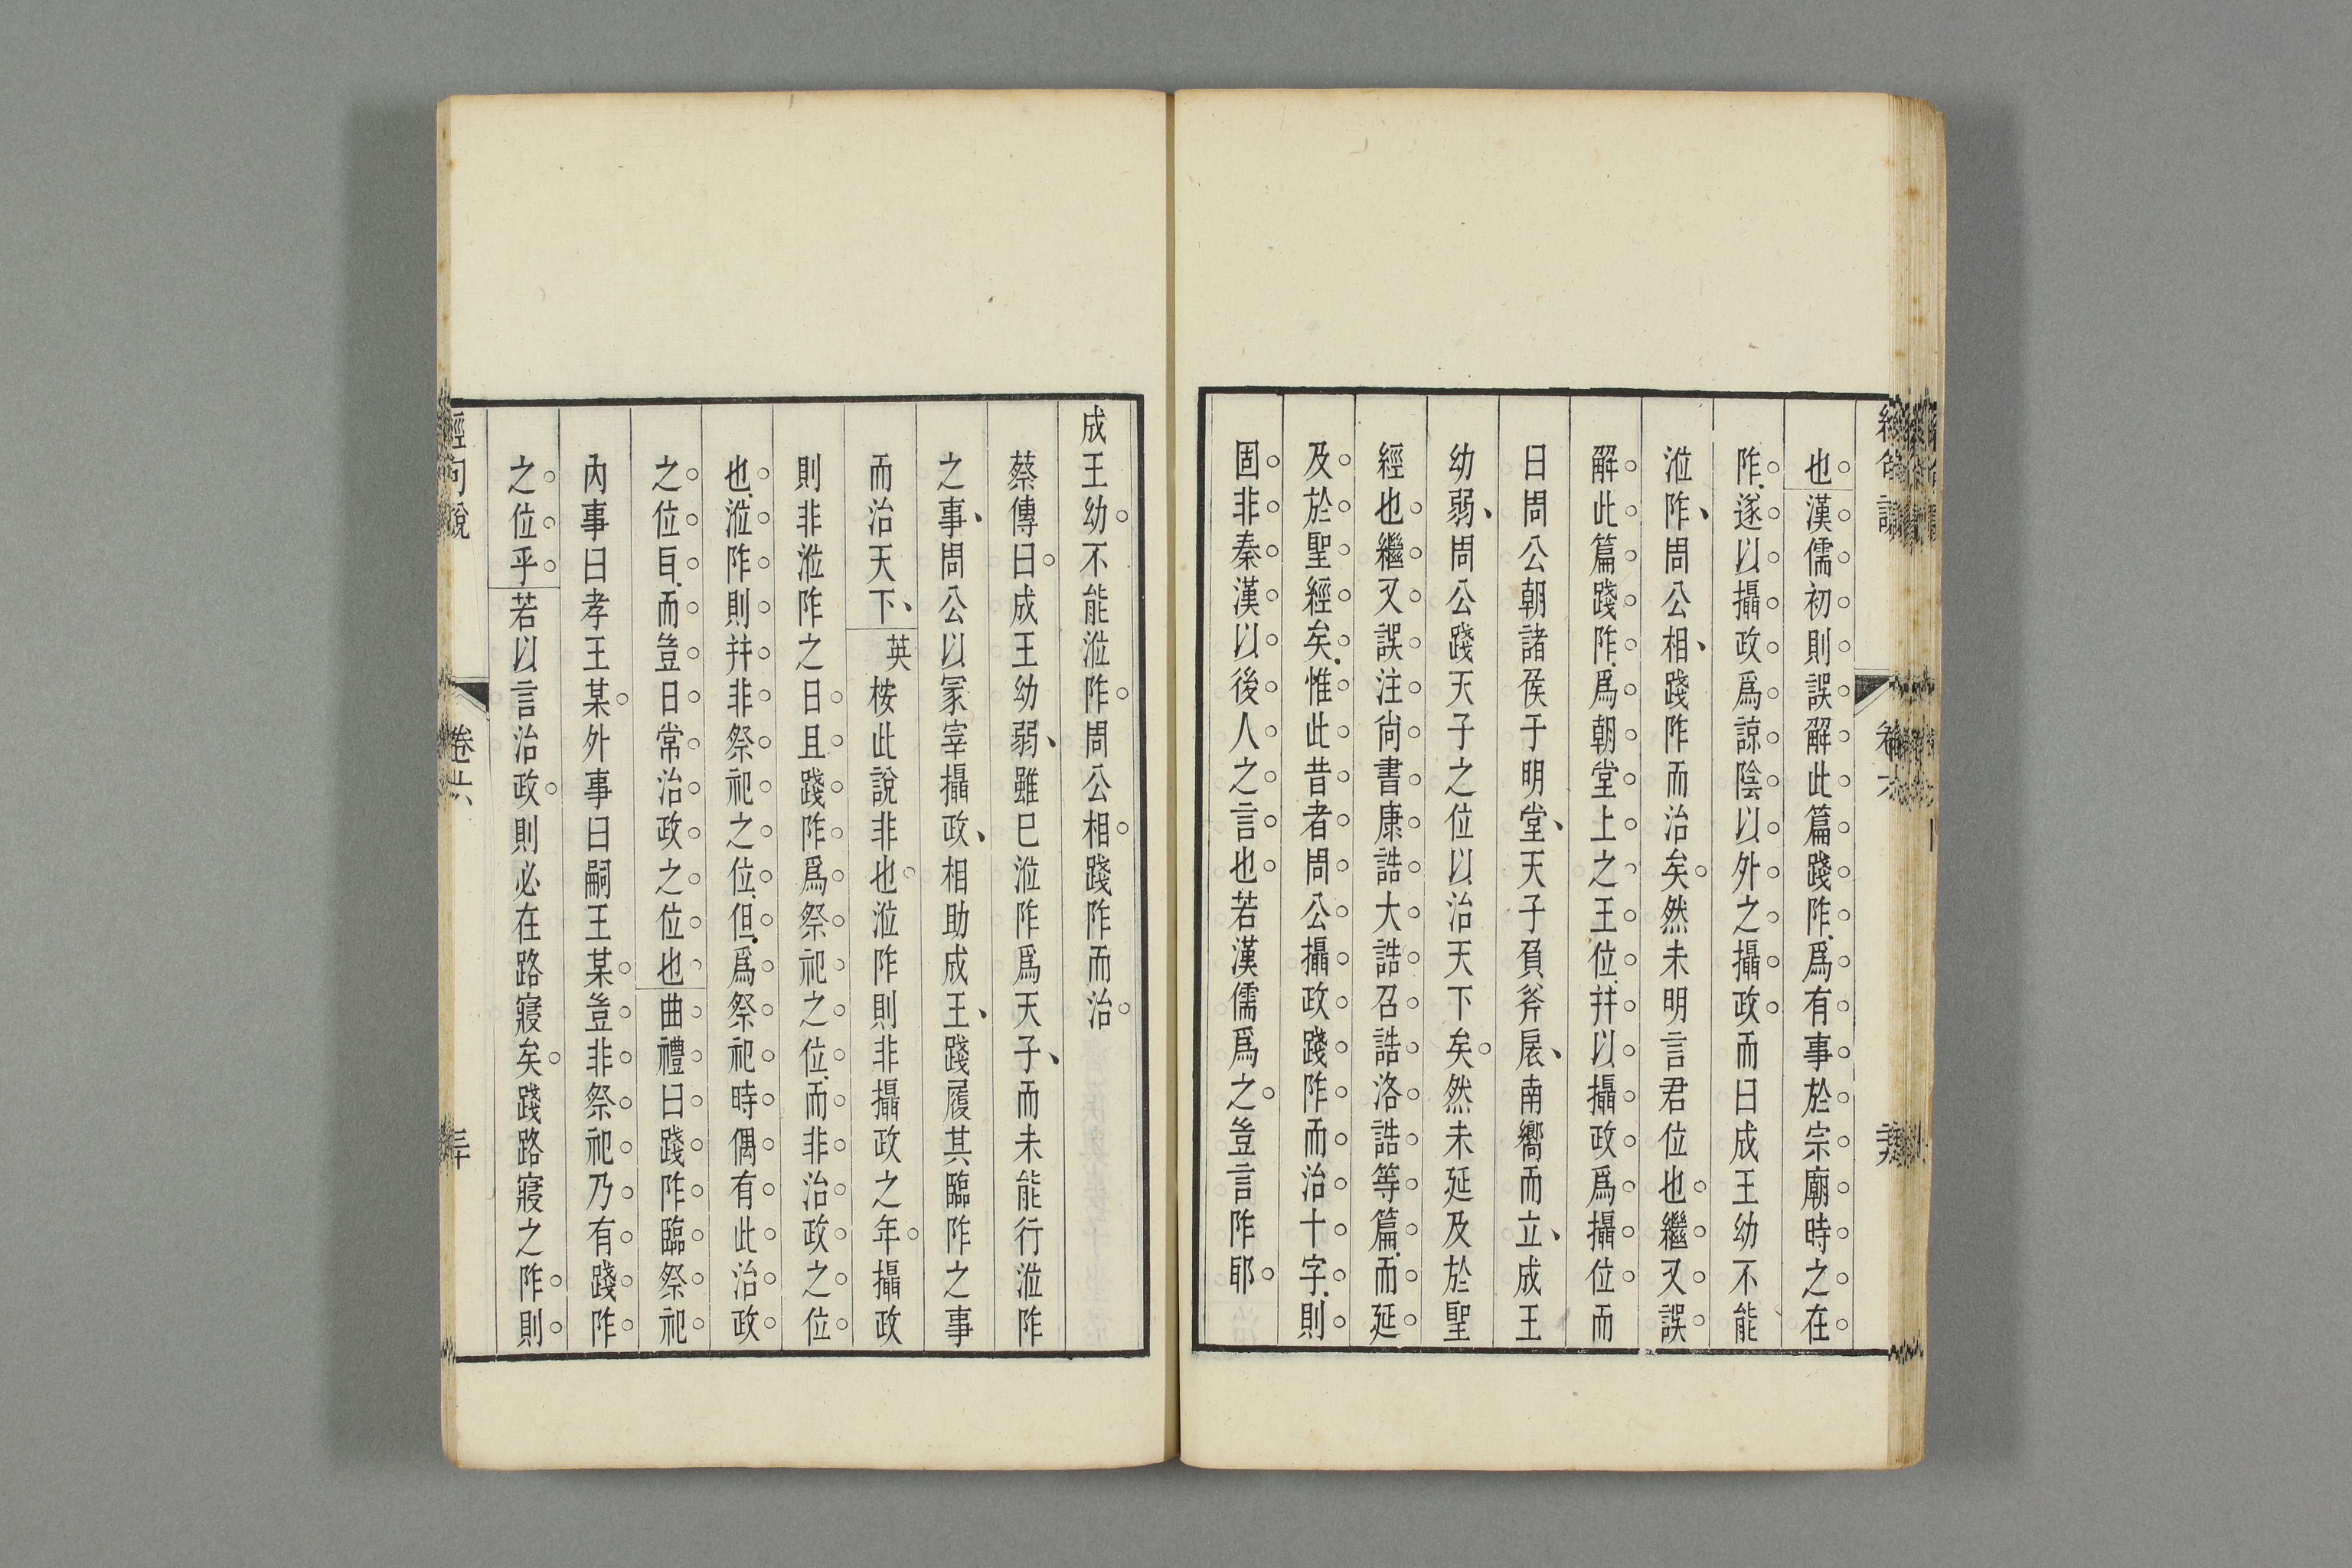 也漢儒初則誤解此篇踐阼爲有事於宗廟時之在
阼遂以攝政爲諒陰以外之攝政而曰成王幼不能
涖阼周公相踐阼而治矣然未明言君位也繼又誤
解此篇踐阼爲朝堂上之王位幷以攝政爲攝位而
曰周公朝諸侯于明堂天子負斧扆南嚮而立成王
幼弱周公踐天子之位以治天下矣然未延及於聖
經也繼又誤注尙書康誥大誥召誥洛誥等篇而延
及於聖經矣惟此昔者周公攝政踐阼而治十字則
固非秦漢以後人之言也若漢儒爲之豈言阼耶
成王幼不能涖阼周公相踐阼而治
蔡傳曰成王幼弱雖已涖阼爲天子而未能行涖阼
之事周公以冢宰攝政相助成王踐履其臨阼之事
而治天下英桉此說非也涖阼則非攝政之年攝政
則非涖阼之日且踐阼爲祭祀之位而非治政之位
也涖阼則幷非祭祀之位但爲祭祀時偶有此治政
之位㠯而豈日常治政之位也曲禮曰踐阼臨祭祀
內事曰孝王某外事曰嗣王某豈非祭祀乃有踐阼
之位乎若以言治政則必在路寢矣踐路寢之阼則
經句說
卷六
三十